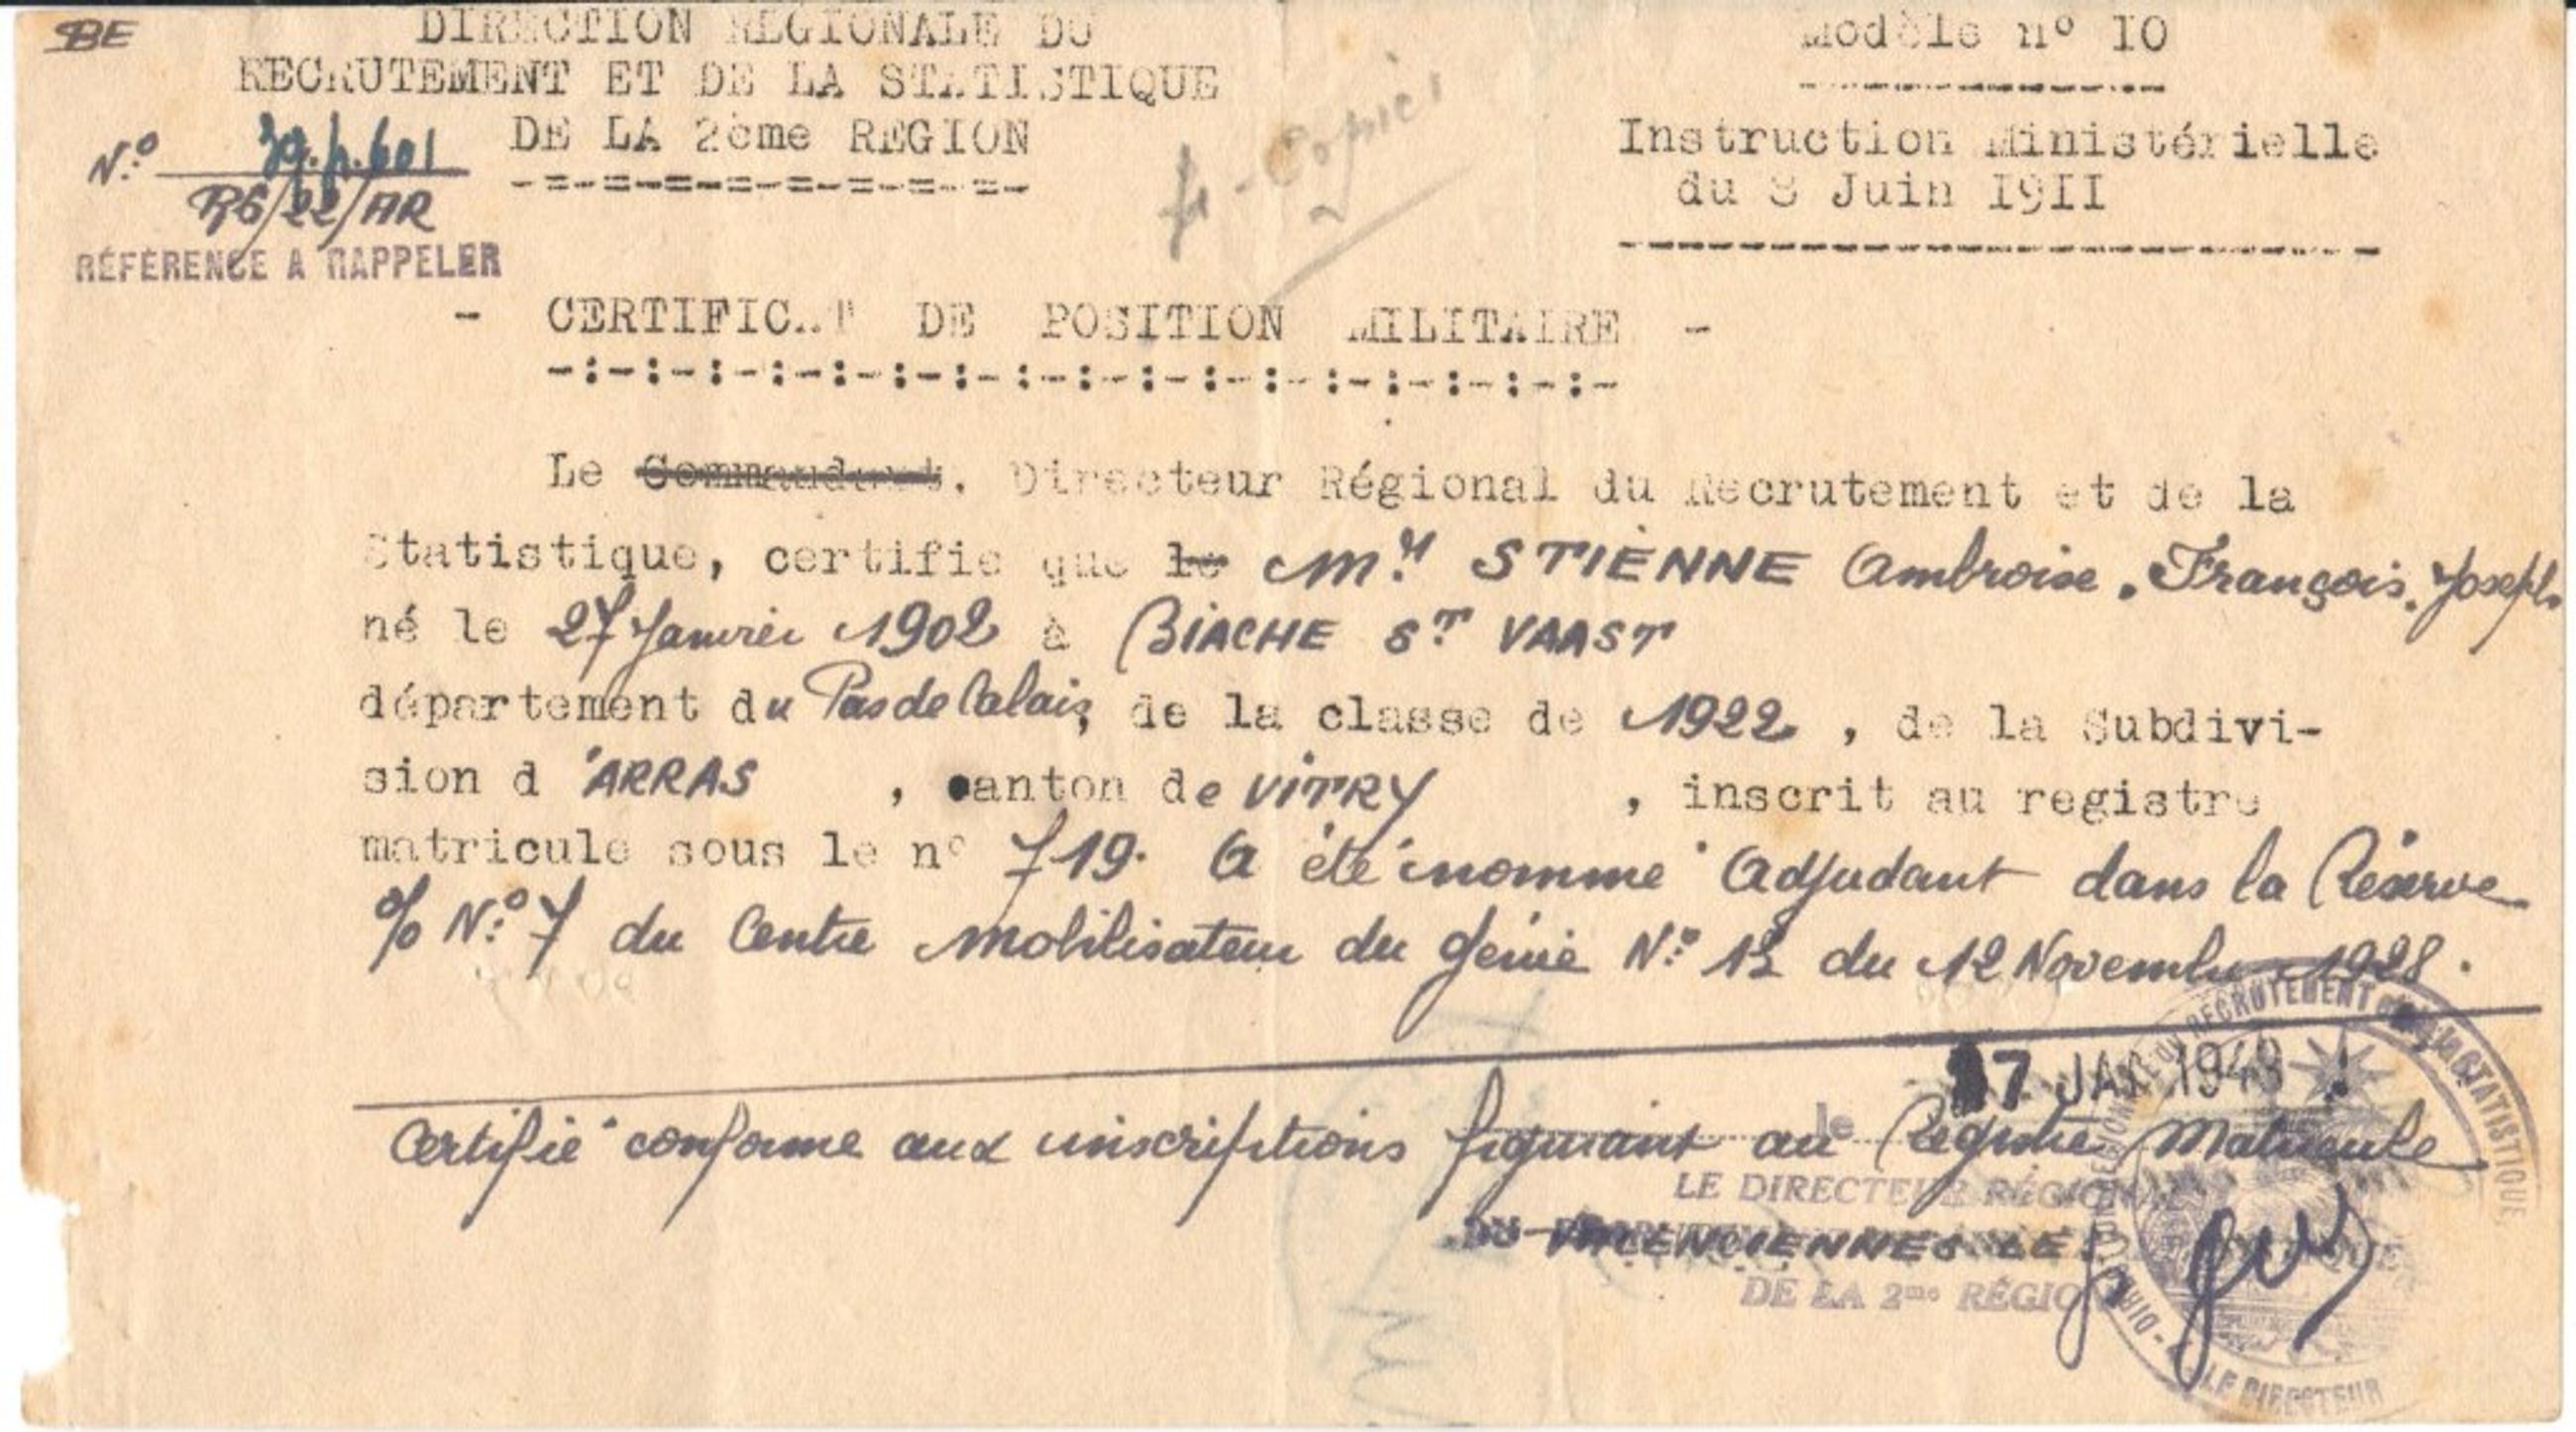 BE
DIRECTION REGIONALE DU
RECRUTEMENT ET DE LA STATISTIQUE
DE LA 2ème REGION
-=-=-=-=-=-=-=-=-=-
N°
R6/22/AR
RÉFÉRENCE A RAPPELER
Modèle n° IO
Instruction Ministérielle
du 8 Juin I9II
- CERTIFICAT DE POSITION MILITAIRE -
-:-:-:-:-:-:-:-:-:-:-:-:-:-:-:-:-:-
Le Commandant. Directeur Régional du Recrutement et de la
Statistique, certifie que le Mr STIENNE Ambroise. François. Joseph
né le 27 Janvier 1902 à BIACHE ST VAAST
département du Pas de Calais, de la classe de 1922, de la Subdivi-
sion d'ARRAS, canton de VITRY, inscrit au registre
matricule sous le n° 719. A été nommé Adjudant dans la Réserve
N° 7 du Centre mobilisateur du Génie N° du 12 Novembre 1928.
17 JAN 1949
Certifié conforme aux inscriptions figurant au Registre Matricule
le
LE DIRECTEUR RÉGIONAL
VALENCIENNES LE
DE LA 2me RÉGION
RECRUTEMENT et de la STATISTIQUE
LE DIRECTEUR